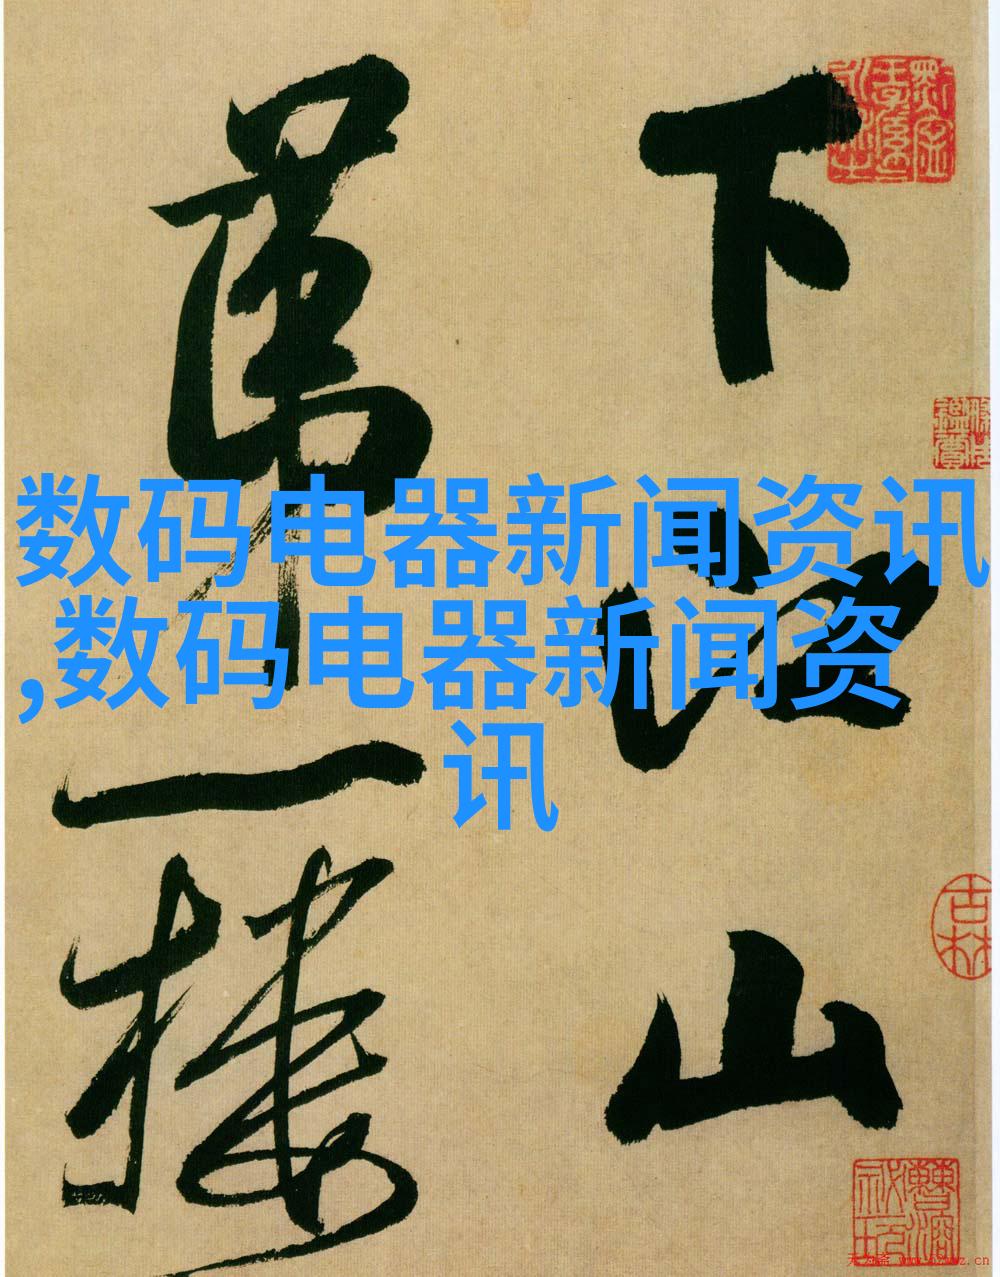 下江山
第一楼
数码电器新闻资讯
,数码电器新闻资
讯